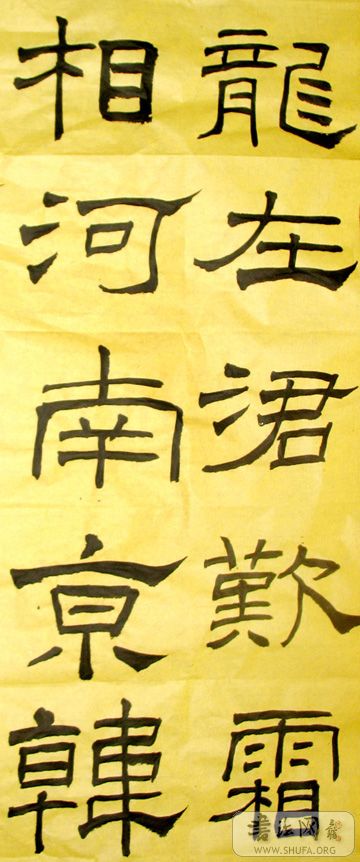 龍在涒歎霜
相河南亰韓
書法网
WWW.SHUFA.ORG